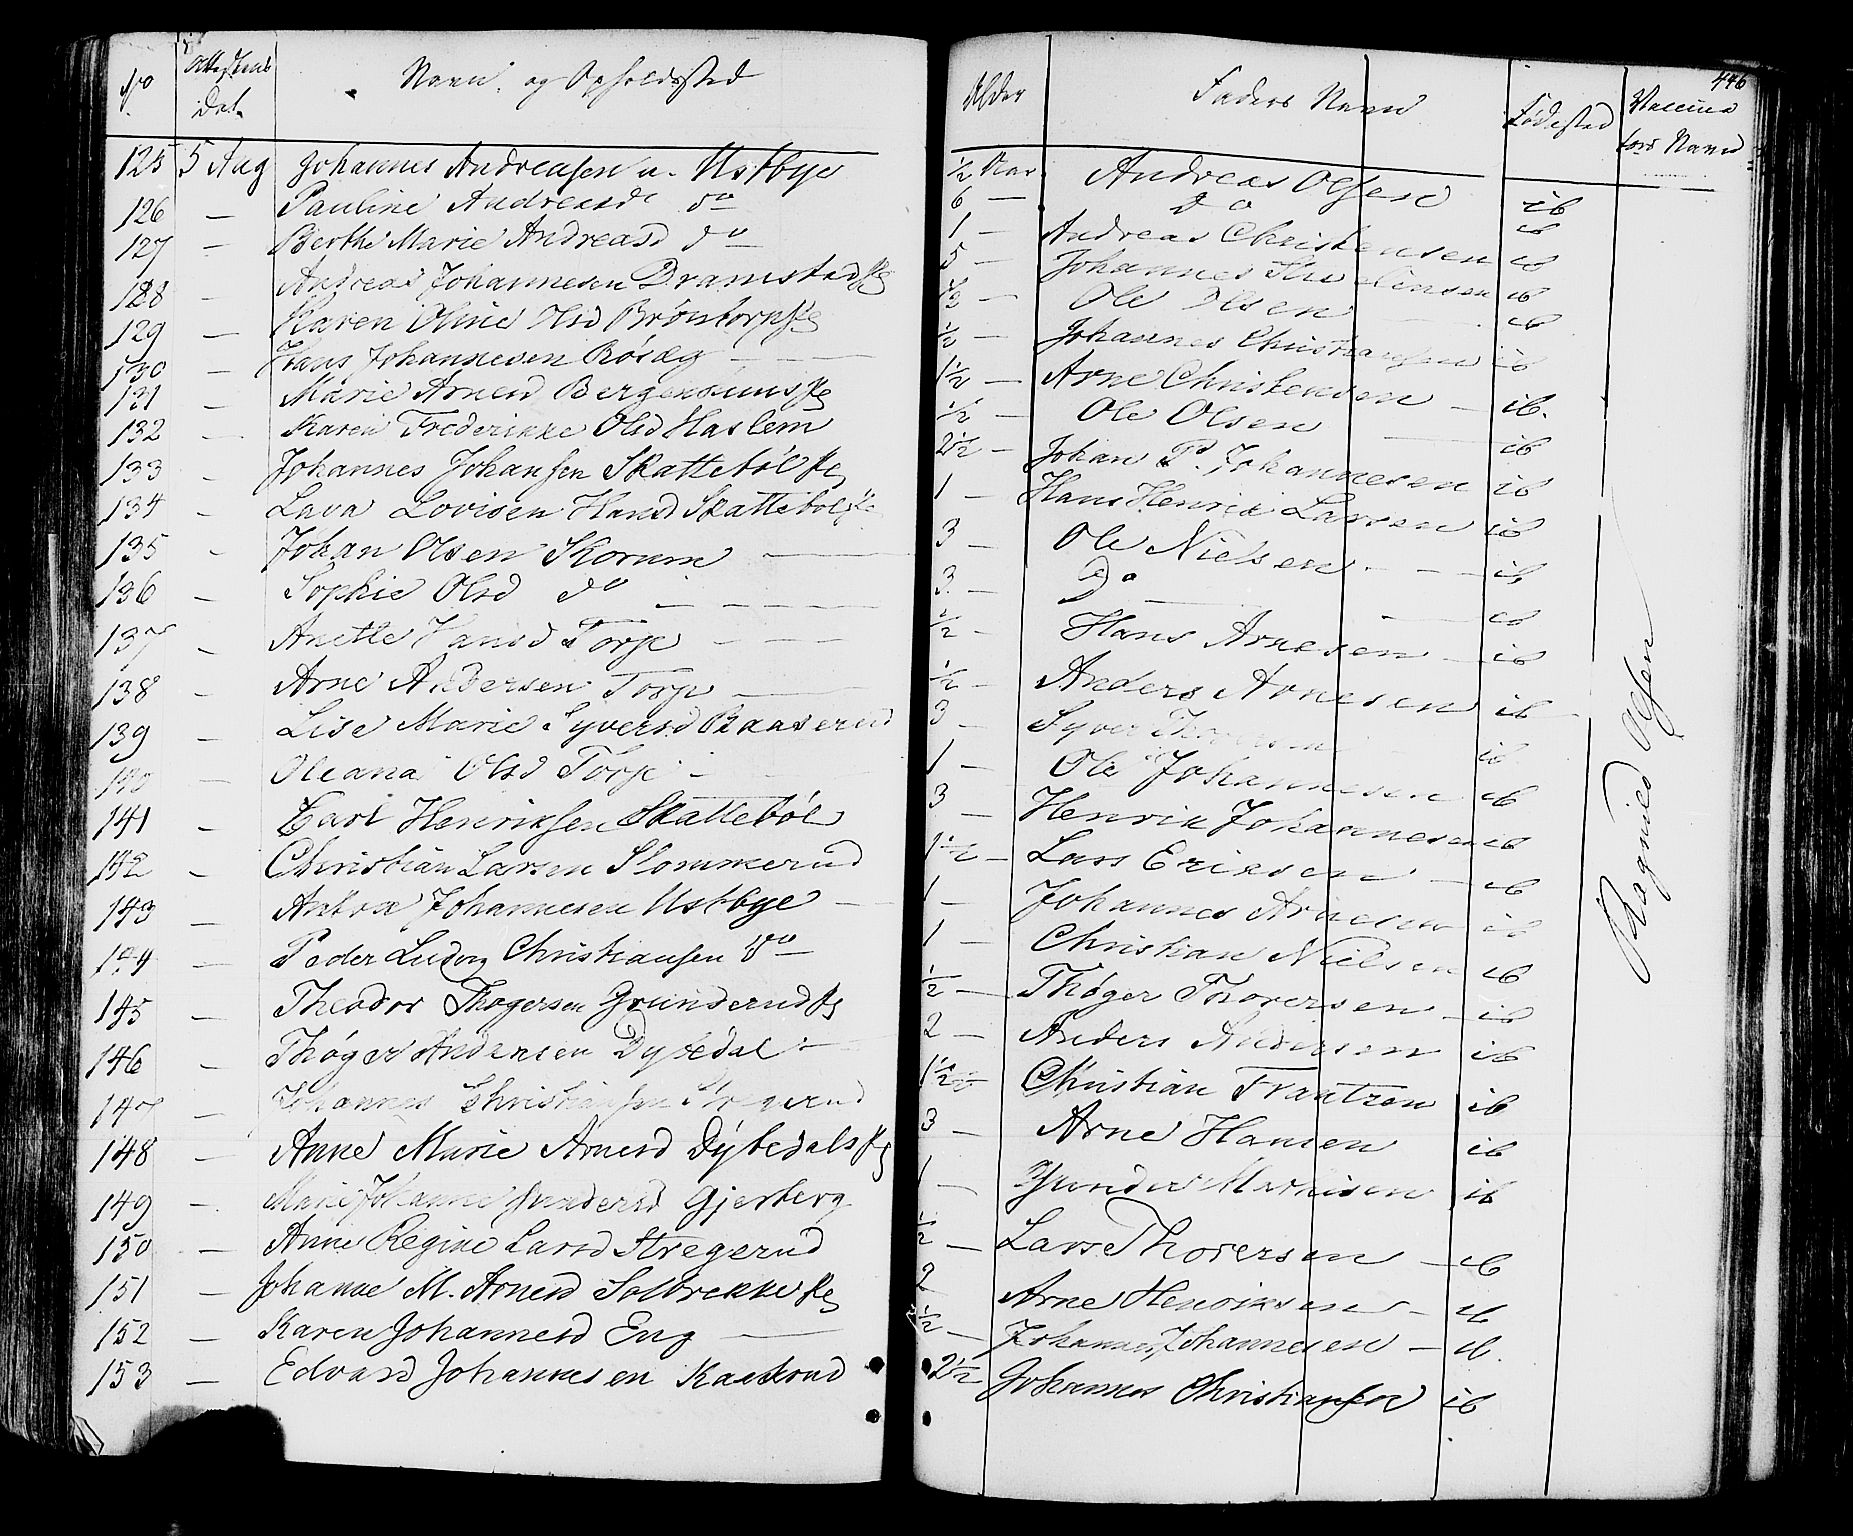 No Attestens Dat. Navn og Opholdssted
125 5 Aug Johannes Andreasen u. Ustbye
126 — Pauline Andreasd do
127 — Berthe Marie Andreasd do
128 — Andreas Johannesen Dramstad
129 — Karen Oline Olsd
130 — Hans Johannesen Rósæg
131 — Marie Arnesd
132 — Karen Frederikke Olsd Haslem
133 — Johannes Johansen Skattebøl
134 — Lava Lovisen Hansd Skattebøl
135 — Johan Olsen Skorum
136 — Sophie Olsd do
137 — Anette Hansd Torp
138 — Arne Andersen Torp
139 — Lise Marie Syversd Baaserud
140 — Oleana Olsd Torp
141 — Carl Henriksen Skattebøl
142 — Christian Larsen Slommerud
143 — Johannesen Ustbye
144 — Peder Ludvig Christiansen do
145 — Theodor Thogersen Grunderud
146 — Thøger Andersen Dybedal
147 — Johannes Christiansen Stregerud
148 — Anne Marie Arnesd Dybedals
149 — Marie Johanne Gundersd Gjerberg
150 — Anne Regine Larsd Stregerud
151 — Johanne M. Arnesd Solbrekke
152 — Karen Johannesd Eng
153 — Edvard Johannesen
446
Alder Faders Navn Fødested Vaccina tørs Navn
1/2 Aar Andreas Olsen ib
6 — Do ib
1 — Andreas Christensen ib
5 — Johannes ib
1/2 — Ole Olsen ib
1/2 — Johannes Christiansen ib
1 1/2 — Arne Christensen — ib.
1/2 — Ole Olsen ib
2 1/2 — Johan P. Johannesen ib
1 — Hans Henrik Larsen ib
3 — Ole Nielsen ib
3. — Do ib
1/2 — Hans Arnesen — ib
1/2 — Anders Arnesen ib
3 — Syver ib
1 — Ole Johannesen ib
3 — Henrik Johannesen ib
1 1/2 — Lars Eriksen — ib
1 — Johannes Arnesen ib
1 — Christian Nielsen ib
1/2 — Thøger Thoversen — ib
2 — Anders Andersen ib
1 1/2 Christian Frantzen ib
3 — Arne Hansen ib
1 — Gunder Mathisen ib
1/2 — Lars Thoversen — ib
2 Arne Henriksen — ib
1/2 — Johannes Johannesen — ib.
2 1/2 Johannes Christiansen ib
Ragnild Olsen